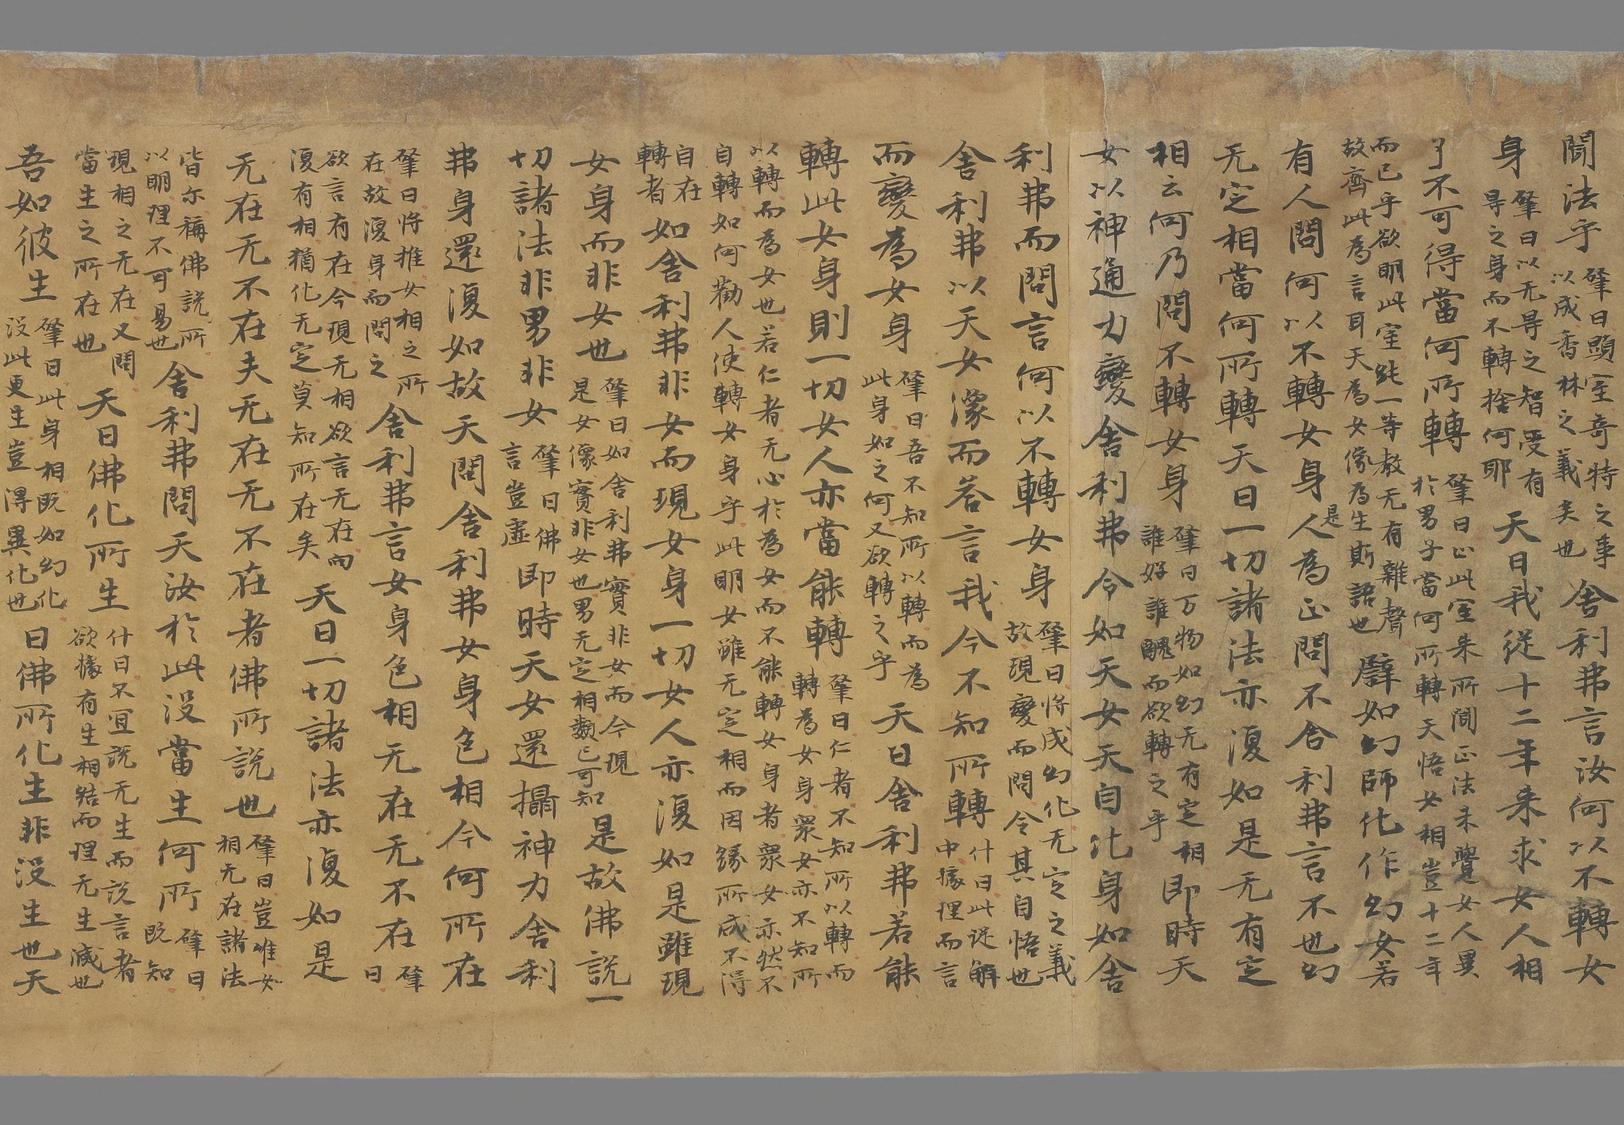 聞法乎肇曰顯室奇特之事以成香林之義矣也舍利弗言汝何以不轉女
身肇曰以无㝵之智受有㝵之身而不轉捨何耶天曰我從十二年来求女人相
了不可得當何所轉肇曰止此室来所聞正法未覺女人異於男子當何所轉天悟女相豈十二年
而已乎欲明此室純一等教无有雜聲故齊此為言耳天為女像為生斯語也譬如幻師化作幻女若
有人問何以不轉女身是人為正問不舍利弗言不也幻
无定相當何所轉天曰一切諸法亦復如是无有定
相云何乃問不轉女身肇曰万物如幻无有定相誰好誰醜而欲轉之乎即時天
女以神通力變舍利弗令如天女天自化身如舍
利弗而問言何以不轉女身肇曰將成幻化无定之義故現變而問令其自悟也
舍利弗以天女像而荅言我今不知所轉什曰此從解中據理而言
而變為女身肇曰吾不知所以轉而為此身如之何又欲轉之乎天曰舍利弗若能
轉此女身則一切女人亦當能轉肇曰仁者不知所以轉而轉為女身衆女亦不知所
以轉而為女也若仁者无心於為女而不能轉女身者衆女亦然不自轉如何勸人使轉女身乎此明女雖无定相而因緣所成不得
自在轉者如舍利弗非女而現女身一切女人亦復如是雖現
女身而非女也肇曰如舍利弗實非女而今現是女像實非女也男无定相類已可知是故佛説一
切諸法非男非女肇曰佛言豈虚即時天女還攝神力舍利
弗身還復如故天問舍利弗女身色相今何所在
肇曰將推女相之所在故復身而問之舍利弗言女身色相无在无不在肇曰
欲言有在今現无相欲言无在向復有相猶化无定莫知所在矣天曰一切諸法亦復如是
无在无不在夫无在无不在者佛所説也肇曰豈唯女相无在諸法
皆尔稱佛説所以明理不可易也舍利弗問天汝於此没當生何所肇曰既知
現相之无在又問當生之所在也天曰佛化所生什曰不宜説无生而説言者欲據有生相結而理无生滅也
吾如彼生肇曰此身相既如幻化没此更生豈得異化也曰佛所化生非没生也天